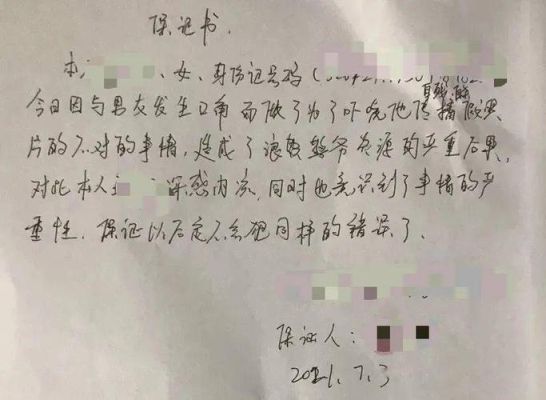 保证书.
本 、女、身份证号码(
今日因与男友发生口角而做了为了吓唬他传播假照
自残的
片的不对的事情,造成了浪费警务资源的严重后果,
对此本人 深感内疚,同时也意识到了事情的严
重性.保证以后定不会犯同样的错误了.
保证人:
2021.7.3